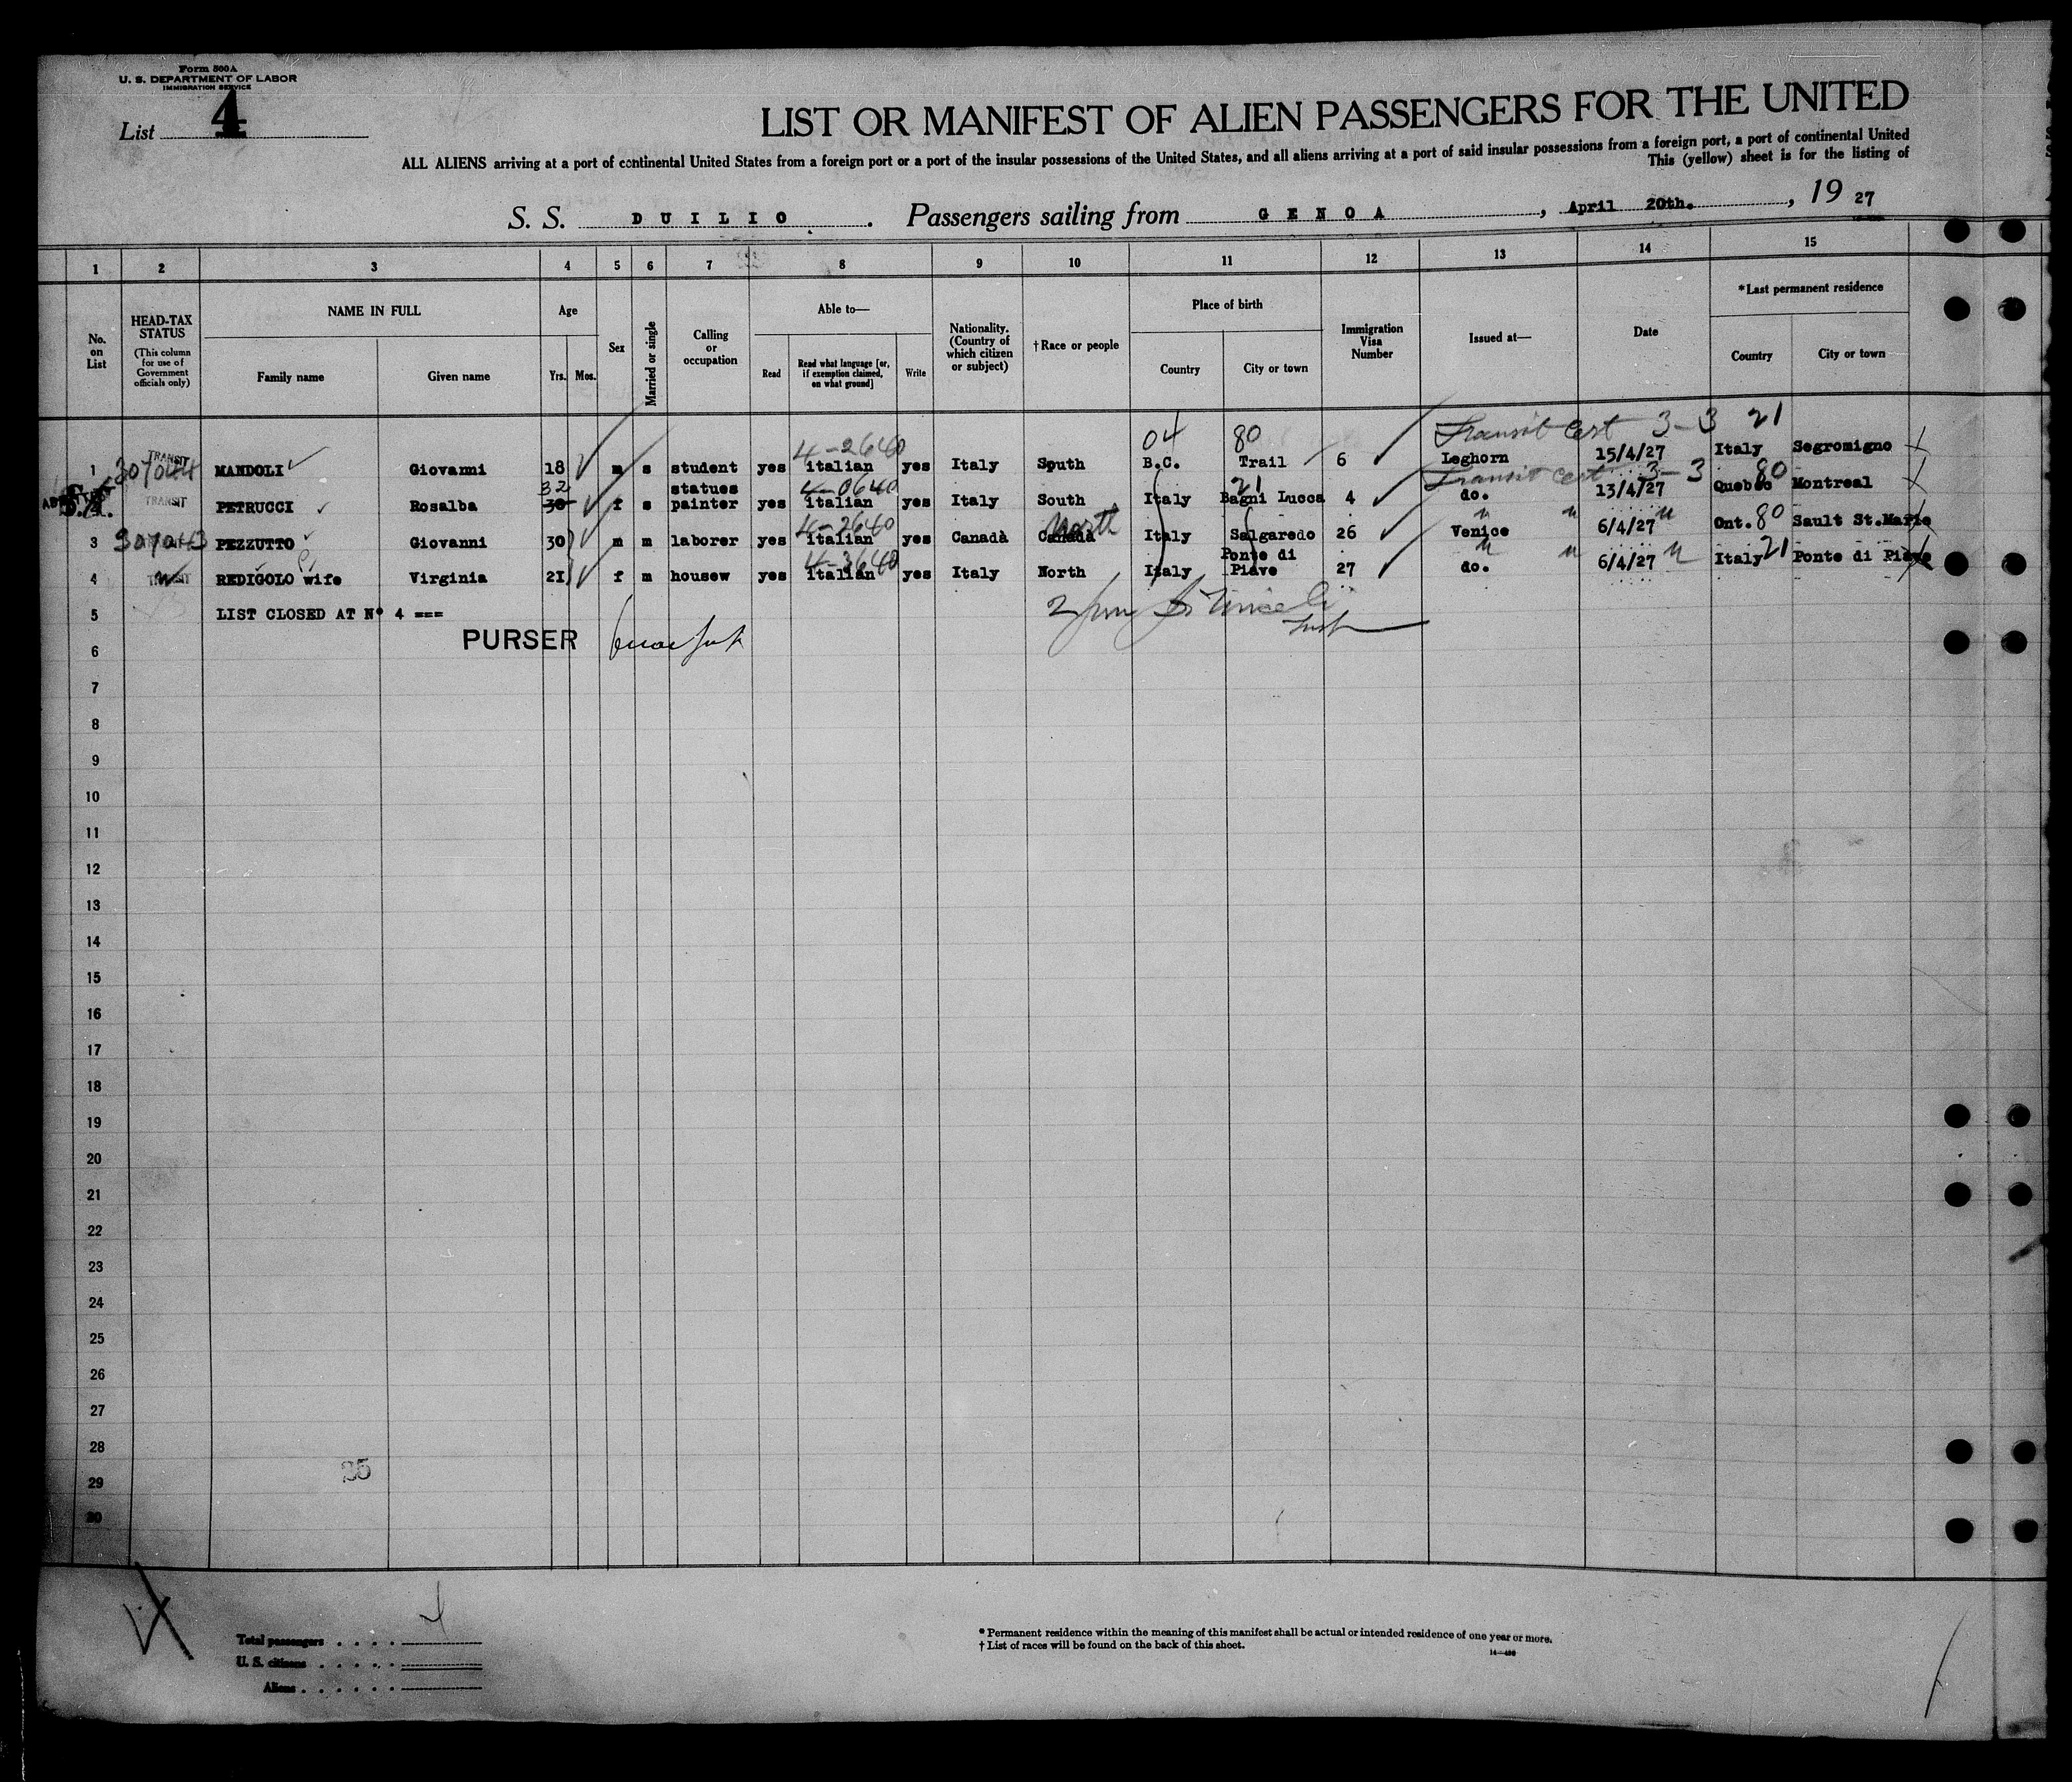 Form 500 A
U. S. DEPARTMENT OF LABOR
IMMIGRATION SERVICE
List 4
LIST OR MANIFEST OF ALIEN PASSENGERS FOR THE UNITED
ALL ALIENS arriving at a port of continental United States from a foreign port or a port of the insular possessions of the United States, and all aliens arriving at a port of said insular possessions from a foreign port, a port of continental United
This (yellow) sheet is for the listing of
S. S. DUILIO. Passengers sailing from GENOA, April 20th., 19 27
1 2 3 4 5 6 7 8 9 10 11 12 13 14 15
No. on List
HEAD-TAX STATUS (This column for use of Government officials only)
NAME IN FULL
Family name
Given name
Age
Yrs. Mos.
Sex
Married or single
Calling or occupation
Able to—
Read
Read what language [or, if exemption claimed, on what ground]
Write
Nationality. (Country of which citizen or subject)
†Race or people
Place of birth
Country
City or town
Immigration Visa Number
Issued at—
Date
*Last permanent residence
Country
City or town
04 80 Transit Cert 3-3 21
4-2640
1 307044 TRANSIT MANDOLI Giovanni 18 m s student yes italian yes Italy South B.C. Trail 6 Leghorn 15/4/27 Italy Segromigno
32 statues 4-0640 21 Transit Cert 3-3 80
TRANSIT PETRUCCI Rosalba 30 f s painter yes italian yes Italy South Italy Bagni Lucca 4 do. 13/4/27 Quebec Montreal
4-2640 North " " " 80
3 307043 PEZZUTTO Giovanni 30 m m laborer yes italian yes Canadà Canadà Italy Salgaredo 26 Venice 6/4/27 Ont. Sault St.Marie
4-3640 " " " 21
4 TRANSIT REDIGOLO wife Virginia 21 f m housew yes italian yes Italy North Italy Ponte di Piave 27 do. 6/4/27 Italy Ponte di Piave
5 LIST CLOSED AT N° 4 ===
PURSER
6
7
8
9
10
11
12
13
14
15
16
17
18
19
20
21
22
23
24
25
26
27
28
25
29
30
Total passengers
U. S. citizens
Aliens
* Permanent residence within the meaning of this manifest shall be actual or intended residence of one year or more.
† List of races will be found on the back of this sheet.